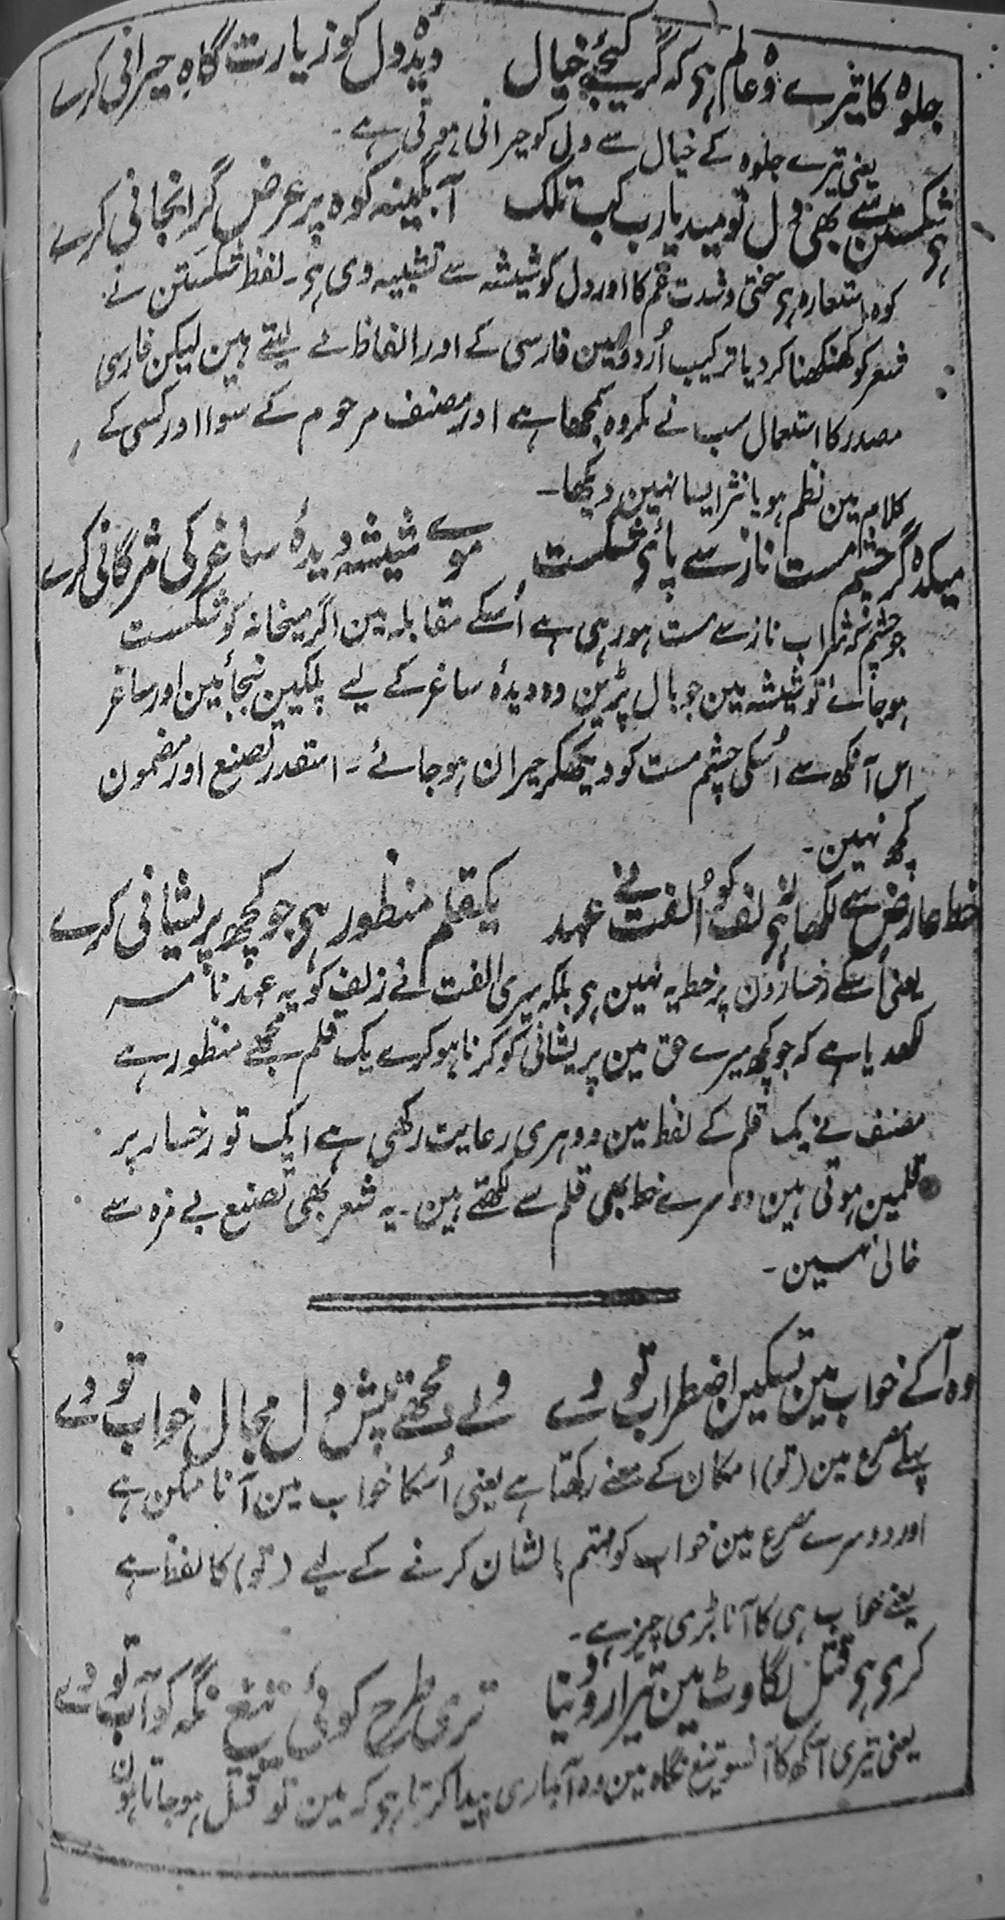 جلوہ کا تیرے وہ عالم ہی کہ گر کیجئے خیال دیدۂ دل کو زیارت گاہِ حیرانی کرے
یعنی تیرے جلوہ کے خیال سے دل کو حیرانی ہوتی ہے ۔
ہی شکستن سے بھی دل نومید یارب کب تلک آبگینہ کوہ پر عرض گرانجانی کرے
کوہ استعارہ ہی سختی و شدت غم کا اور دل کو شیشہ سے تشبیہ دی ہی ۔ لفظ شکستن نے
شعر کو کھنکھنا کر دیا ترکیب اُردو مین فارسی کے اور الفاظ لے لیتے ہین لیکن فارسی
مصدر کا استعمال سب نے مکروہ سمجھا ہے اور مصنف مرحوم کے سوا اور کسی کے
کلام مین نظم ہو یا نثر ایسا نہین دیکھا ۔
میکدہ گر چشم مست ناز سے پائے شکست موے شیشہ دیدۂ ساغر کی مژگانی کرے
جو چشم کہ شراب ناز سے مست ہو رہی ہے اُسکے مقابلہ مین اگر میخانہ کو شکست
ہو جائے تو شیشہ مین جو بال پڑین وہ دیدۂ ساغر کے لیے پلکین بنجائین اور ساغر
اس آنکھ سے اُسکی چشم مست کو دیکھکر حیران ہو جائے ۔ اسقدر تصنع اور مضمون
کچھ نہین ۔
خط عارض سے لکھا ہی زلف کو اُلفت نے عہد یکقلم منظور ہی جو کچھ پریشانی کرے
یعنی اُسکے رخسارون پر خط یہ نہین ہی بلکہ میری الفت نے زلف کو یہ عہد نامہ
لکھدیا ہے کہ جو کچھ میرے حق مین پریشانی کو کرنا ہو کرے یک قلم مجھے منظور ہے
مصنف نے یک قلم کے لفظ مین دوہری رعایت رکھی ہے ایک تو رخسار پر
قلمین ہوتی ہین دوسرے خط بھی قلم سے لکھتے ہین ۔ یہ شعر بھی تصنع بے مزہ سے
خالی نہین ۔
وہ آکے خواب مین تسکین اضطراب تو دے ولے مجھے تپش دل مجال خواب تو دے
پہلے مصرع مین (تو) امکان کے معنے رکھتا ہے یعنی اُسکا خواب مین آنا ممکن ہے
اور دوسرے مصرع مین خواب کو مہتم بالشان کرنے کے لیے (تو) کا لفظ ہے
یعنے خواب ہی کا آنا بڑی چیز ہے ۔
کری ہی قتل لگاوٹ مین تیرا رو دینا تری طرح کوئی تیغ نگہ کو آب تو دے
یعنی تیری آنکھ کا آنسو تیغ نگاہ مین وہ آبداری پیدا کرتا ہی کہ مین تو قتل ہو جاتا ہون